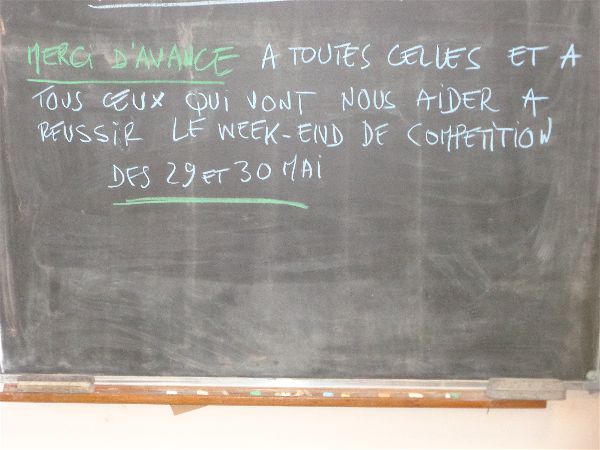 MERCI D'AVANCE A TOUTES CELLES ET A
TOUS CEUX QUI VONT NOUS AIDER A
REUSSIR LE WEEK-END DE COMPETITION
DES 29 ET 30 MAI